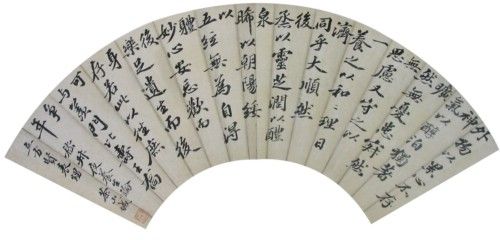 外物以累心不存
神氣以醇白獨著
曠然無憂患寂然
無思慮又守之以一
養之以和和理日
濟同乎大順然
後蒸以靈芝潤以醴
泉晞以朝陽綏
以五絃無為自得
體妙心玄忘歡而後
樂足遺生而後
身存若此以往庶
可與羨門比壽王喬
爭年